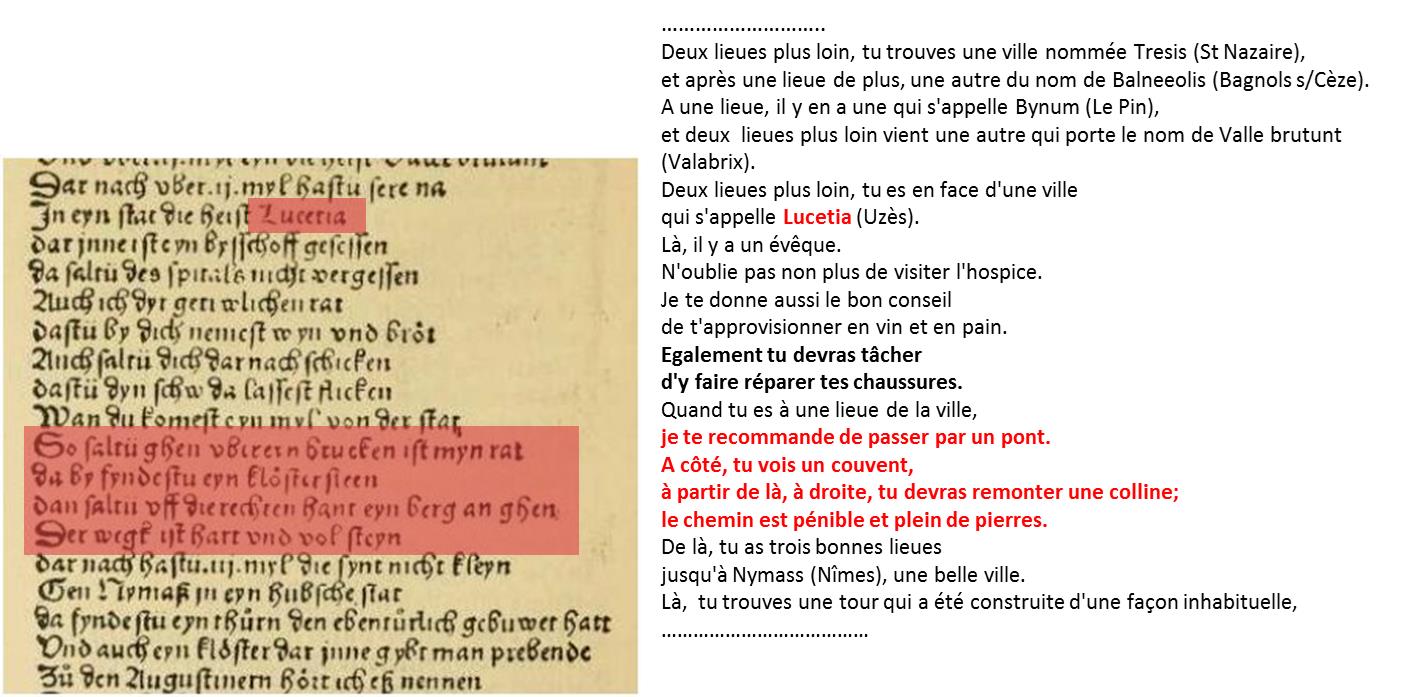 Vnd vber .ij. myl eyn die heist Valle brutunt
Dar nach vber .ij. myl hastu sere na
Jn eyn stat die heist Lucetia
dar jnne ist eyn bysschoff gesessen
da saltü des spitals nicht vergessen
Auch ich dyr getruwlichen rat
dastü by dich nemest wyn vnd bröt
Auch saltü dich dar nach schicken
dastü dyn schw da lassest flicken
Wan du komest eyn myl von der stat
So saltü ghen vber eyn brucken ist myn rat
da by fyndestu eyn klöster steen
dan saltü vff die rechten hant eyn berg an ghen
Der wegk ist hart vnd vol steyn
dar nach hastu .iij. myl die synt nicht kleyn
Gen Nymaß jn eyn hubsche stat
da fyndestü eyn thůrn den ebentürlich gebuwet hatt
Vnd auch eyn klöster dar jnne gybt man prebende
Zů den Augustinern hört ich eß nennen
………………………..
Deux lieues plus loin, tu trouves une ville nommée Tresis (St Nazaire),
et après une lieue de plus, une autre du nom de Balneeolis (Bagnols s/Cèze).
A une lieue, il y en a une qui s'appelle Bynum (Le Pin),
et deux lieues plus loin vient une autre qui porte le nom de Valle brutunt
(Valabrix).
Deux lieues plus loin, tu es en face d'une ville
qui s'appelle Lucetia (Uzès).
Là, il y a un évêque.
N'oublie pas non plus de visiter l'hospice.
Je te donne aussi le bon conseil
de t'approvisionner en vin et en pain.
Egalement tu devras tâcher
d'y faire réparer tes chaussures.
Quand tu es à une lieue de la ville,
je te recommande de passer par un pont.
A côté, tu vois un couvent,
à partir de là, à droite, tu devras remonter une colline;
le chemin est pénible et plein de pierres.
De là, tu as trois bonnes lieues
jusqu'à Nymass (Nîmes), une belle ville.
Là, tu trouves une tour qui a été construite d'une façon inhabituelle,
………………………………